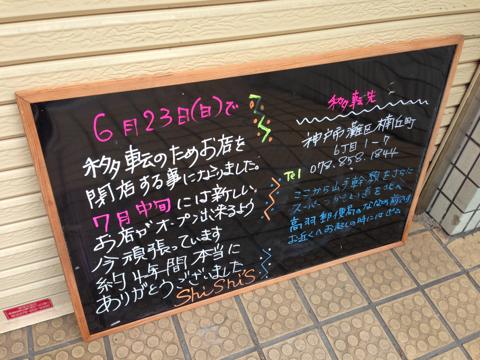 6月23日(日)で
移転のためお店を
閉店する事になりました。
7月中旬には新しい
お店がオープン出来るよう
今頑張っています
約4年間本当に
ありがとうございました
ShiShi'S
移転先
神戸市灘区楠丘町
6丁目1-7
Tel 078.858.1844
ここから山手幹線をさらに
高羽郵便局のななめ前です
お近くへお越しの時にはぜひ